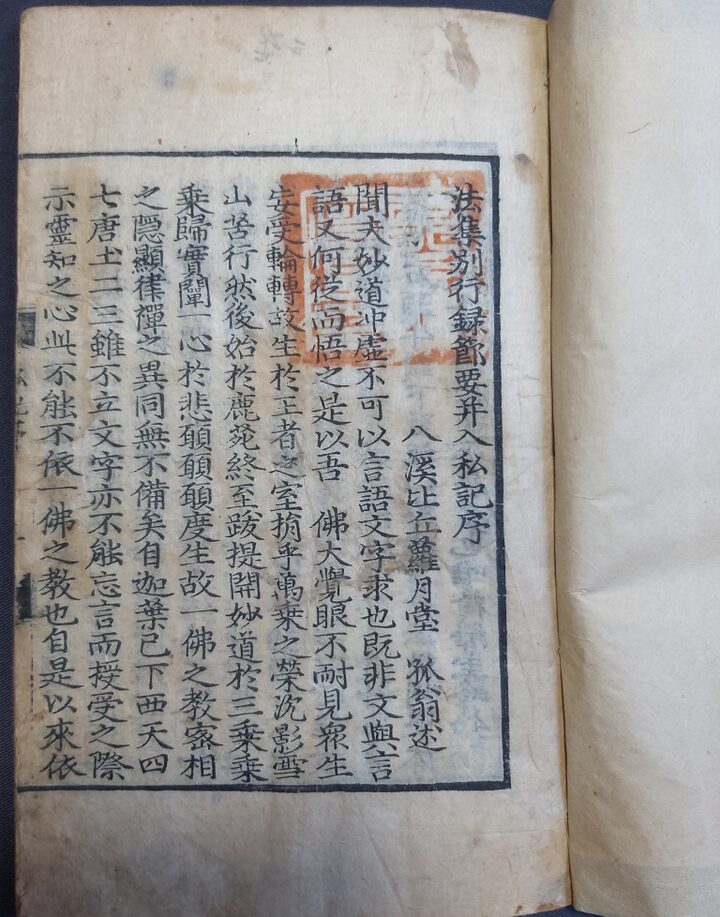 法集別行録節要并入私記序
八溪比丘蘿月堂 狐翁述
聞夫妙道冲虛不可以言語文字求也既非文與言
語又何從而悟之是以吾 佛大覺眼不耐見衆生
妄受輪轉故生於王者之室捐乎萬乗之榮沈影雪
山苦行然後始於鹿苑終至跋提開妙道於三乗乗
乗歸實闡一心於悲願願願度生故一佛之教宻相
之隱顯律禪之異同無不備矣自迦葉已下西天四
七唐土二三雖不立文字亦不能忘言而授受之際
示靈知之心此不能不依一佛之教也自是以來依